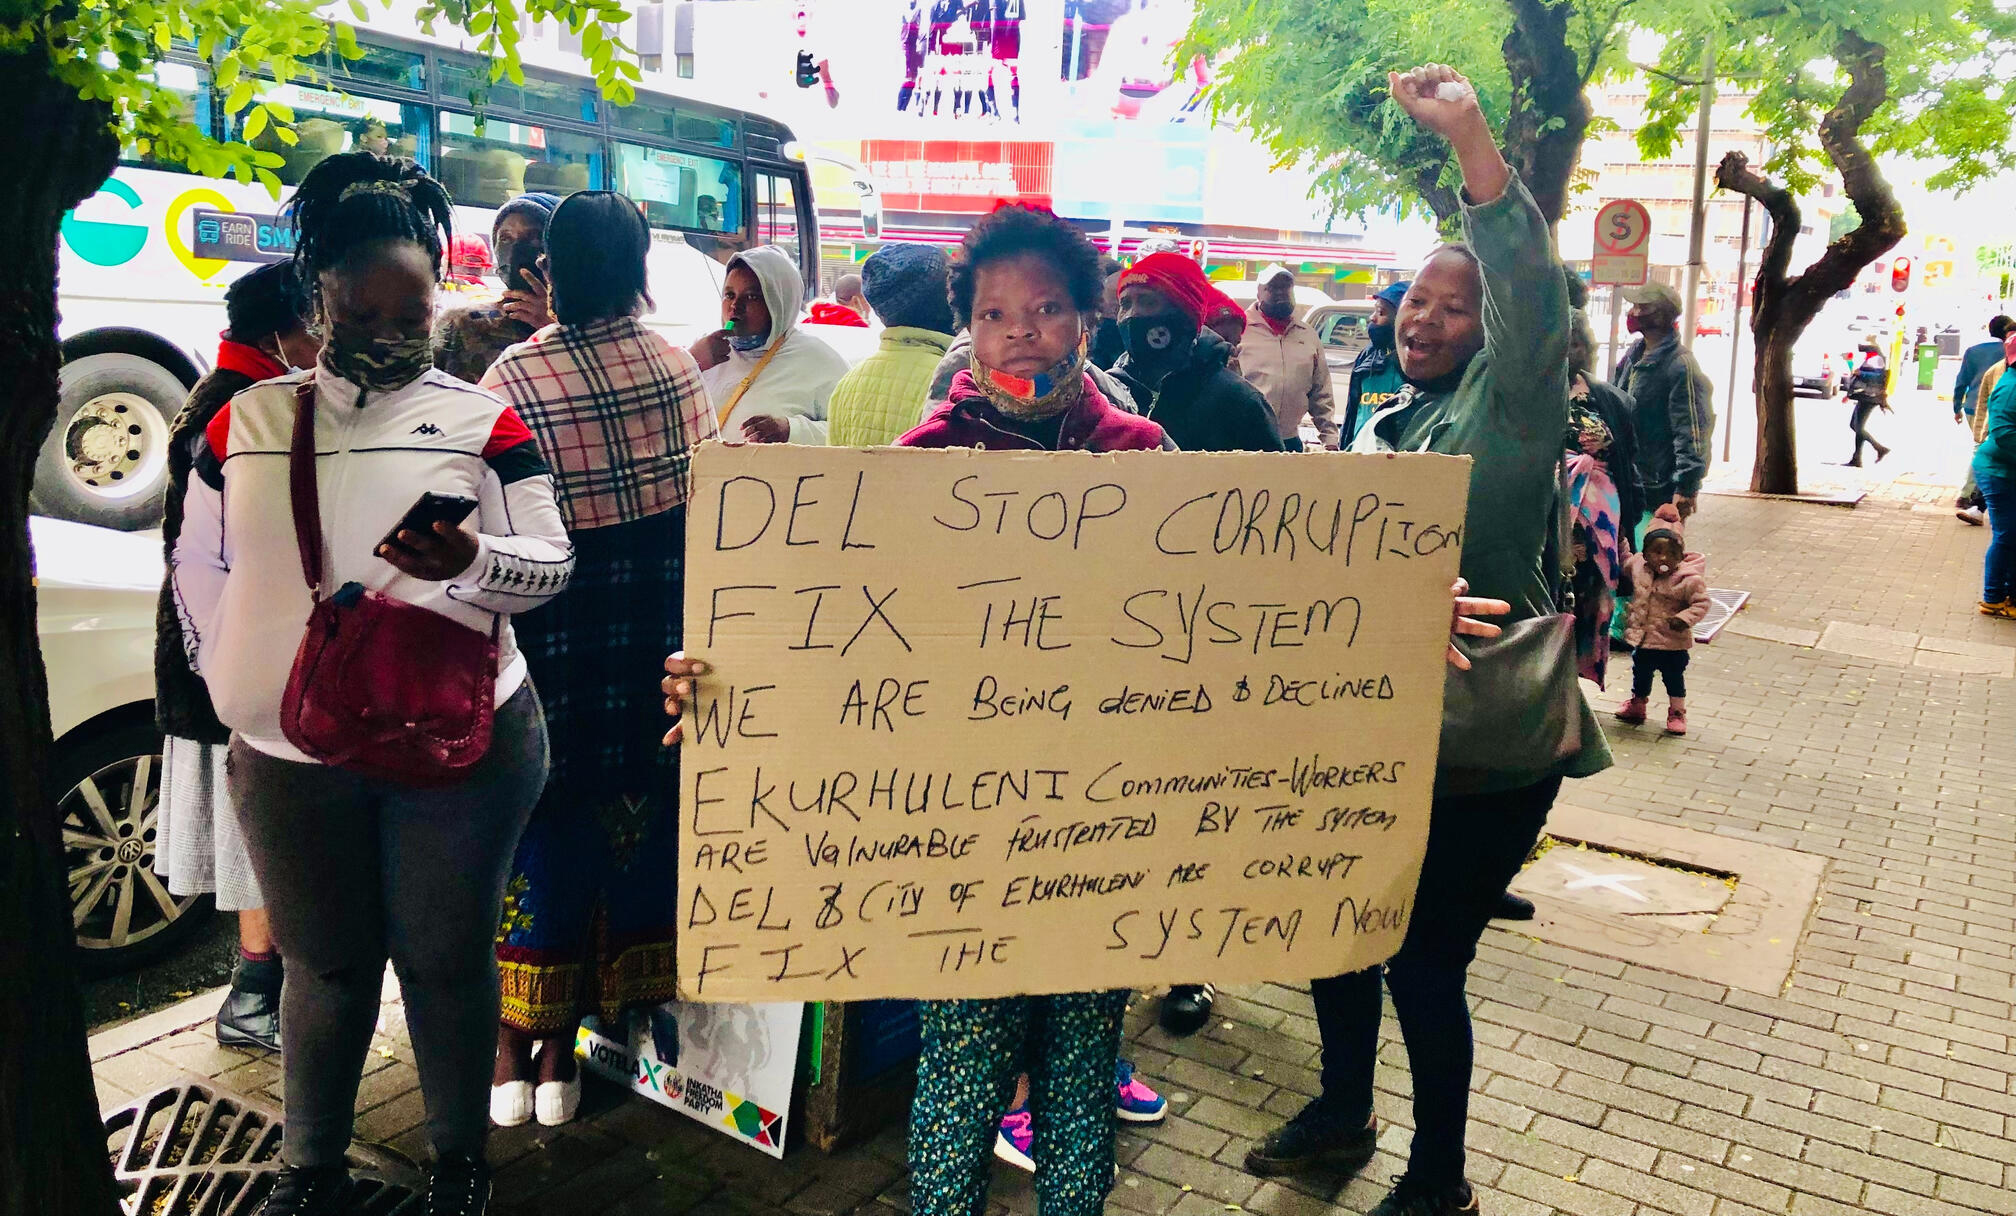 EMERGENCY EXIT
EMERGENCY EXIT
GO
EARN
RIDE
SM
S
DEL STOP CORRUPTION
FIX THE SYSTEM
WE ARE BEING DENIED & DECLINED
EKURHULENI COMMUNITIES-WORKERS
ARE ValNURABLE FRUSTRATED BY THE SYSTEM
DEL & CITY OF EKURHULENI ARE CORRUPT
FIX THE SYSTEM NOW
VOTELA X
INKATHA
FREEDOM
PARTY